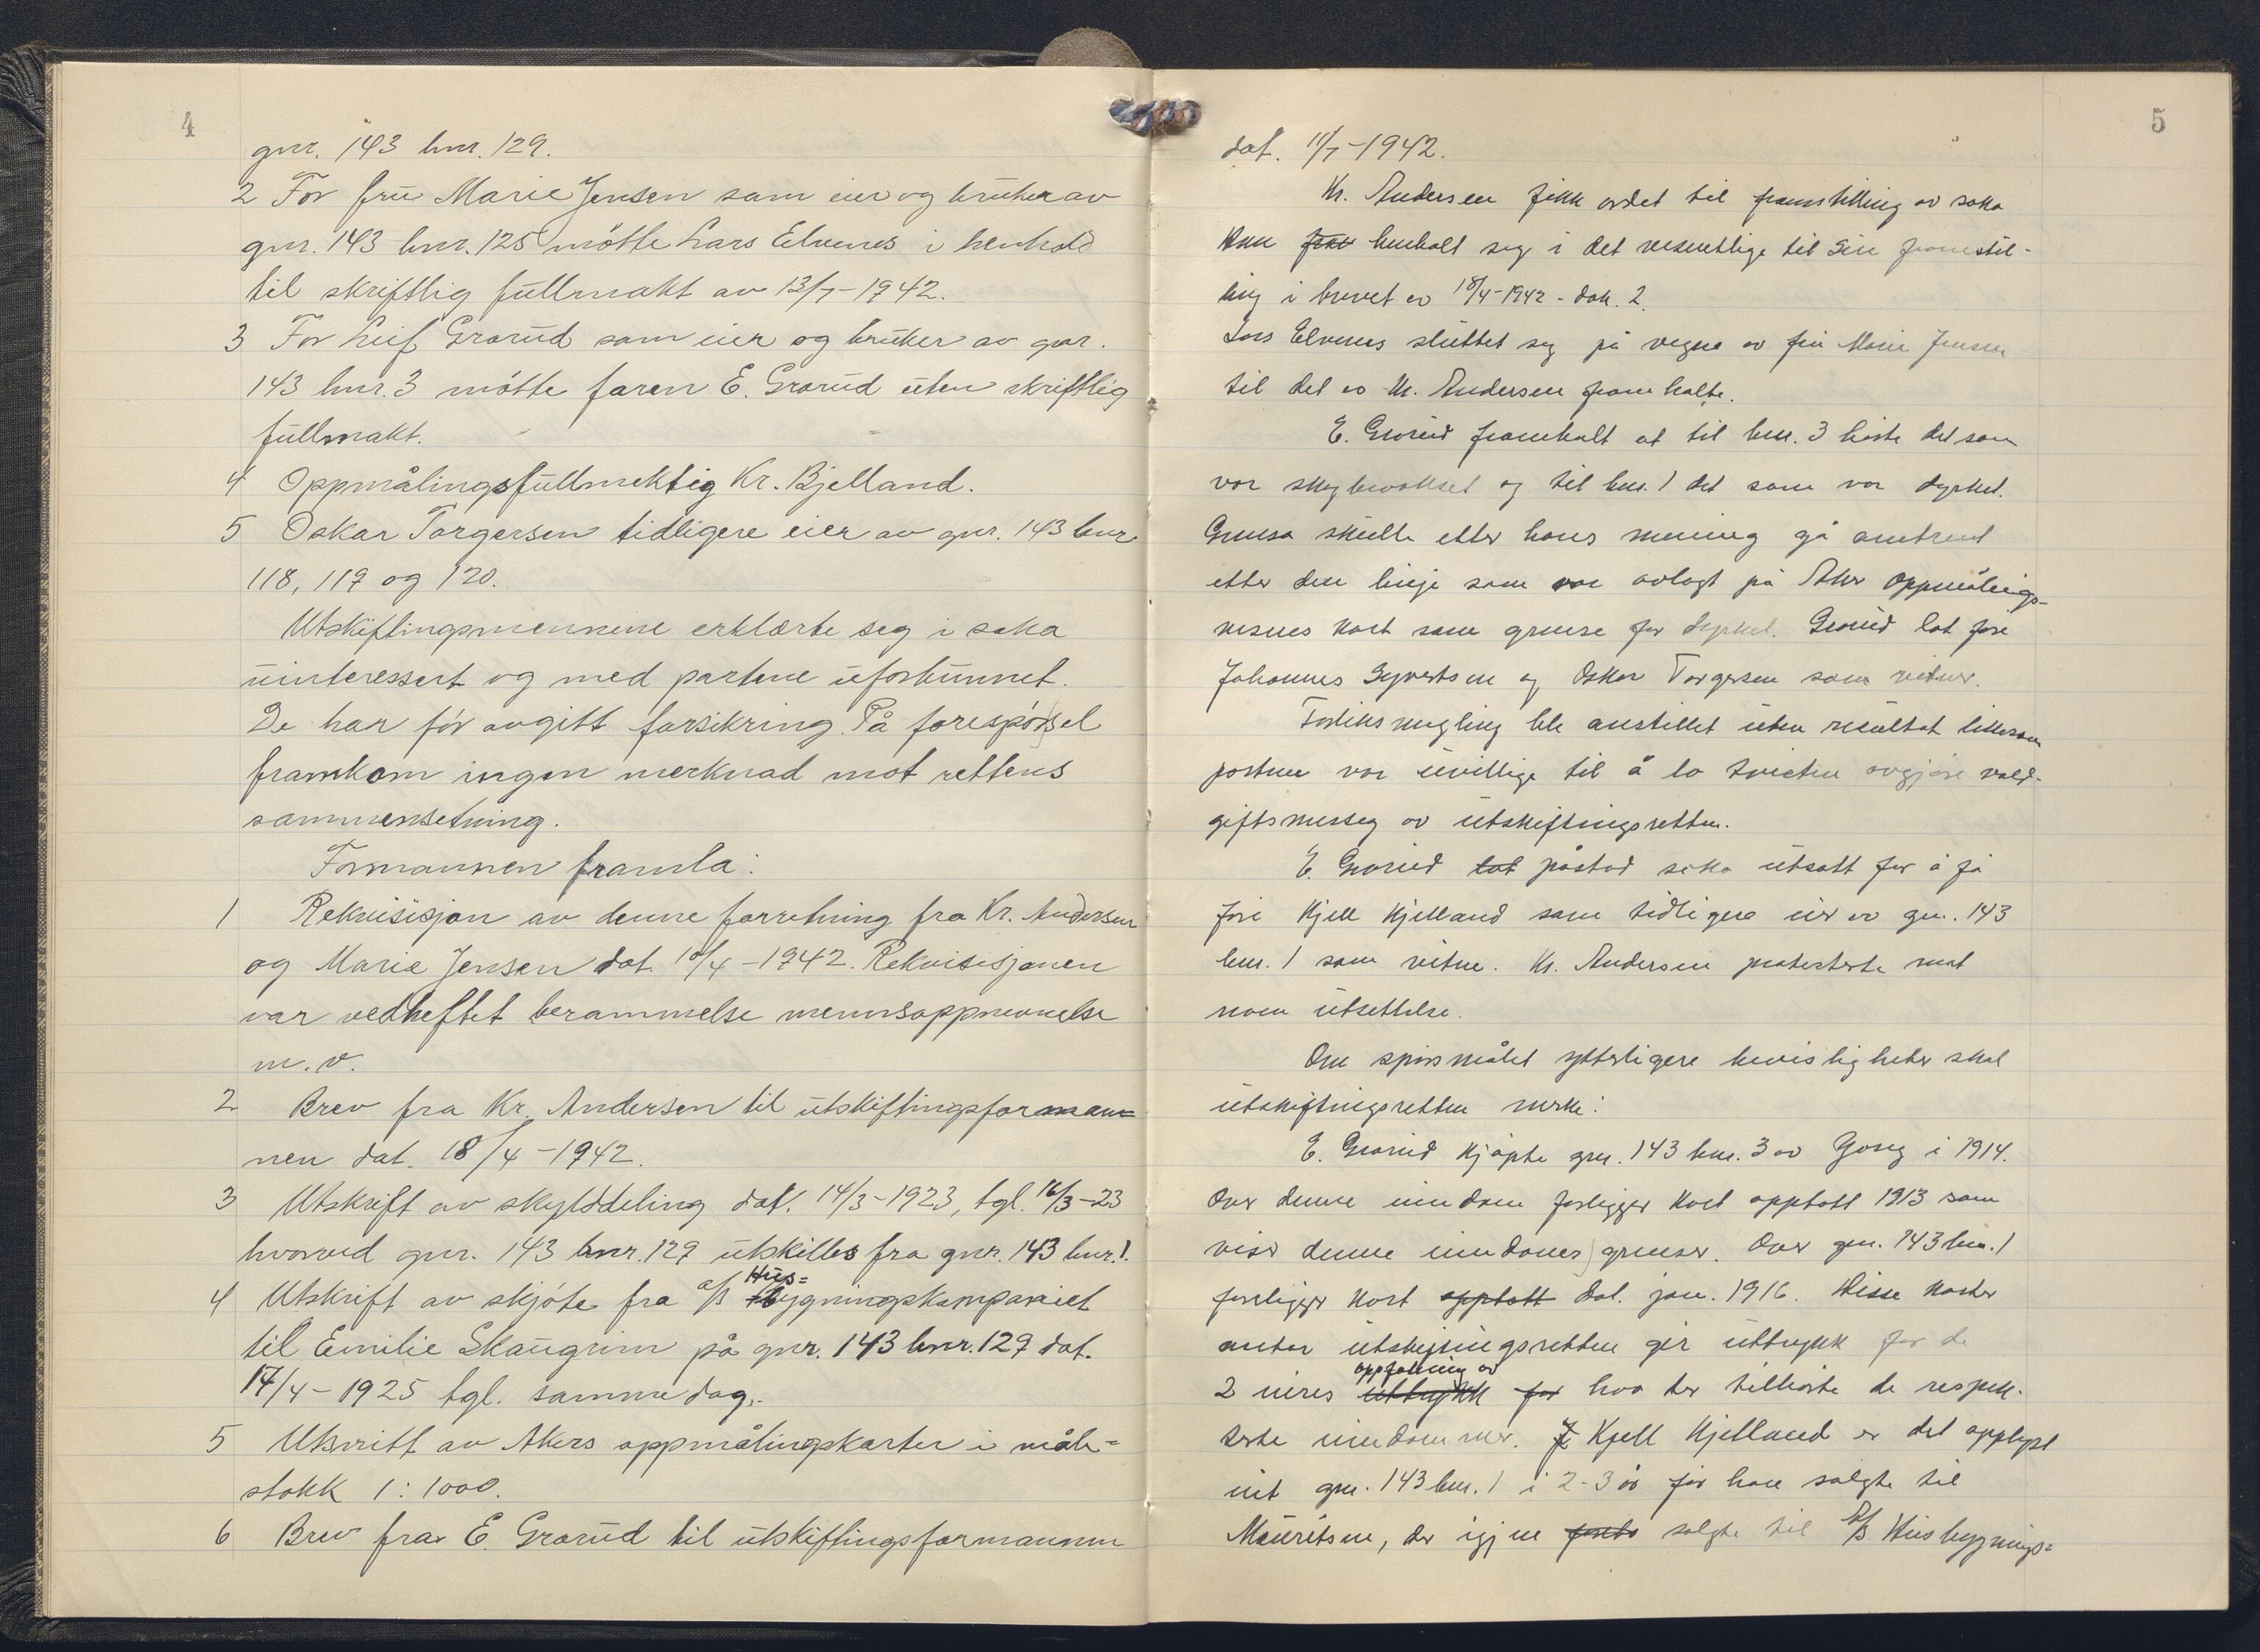 4
gnr. 143 bnr. 129.
2 For fru Marie Jensen som eier og bruker av
gnr. 143 bnr. 125 møtte Lars Elvenes i henhold
til skriftlig fullmakt av 13/7-1942.
3 For Leif Grorud som eier og bruker av gnr.
143 bnr. 3 møtte faren E. Grorud uten skriftlig
fullmakt.
4 Oppmålingsfullmektig Kr. Bjelland.
5 Oskar Torgersen tidligere eier av gnr. 143 bnr
118, 119 og 120.
Utskiftingsmennene erklærte seg i saka
uinteressert og med partene uforbunnet.
De har før avgitt forsikring. På forespørsel
framkom ingen merknad mot rettens
sammensetning.
Formannen framla:
1 Rekvisisjon av denne forretning fra Kr. Andersen
og Marie Jensen dat. 18/4-1942. Rekvisisjonen
var vedheftet berammelse mennsoppnevnelse
m.v.
2 Brev fra Kr. Andersen til utskiftingsforman=
nen dat. 18/4-1942.
3 Utskrift av skylddeling dat. 14/3-1923, tgl. 16/3-23
hvorved gnr. 143 bnr. 129 utskilles fra gnr. 143 bnr. 1.
4 Utskrift av skjøte fra a/s Hus=
bygningskompaniet
til Emilie Skaugrim på gnr. 143 bnr. 129 dat.
17/4-1925 tgl. samme dag.
5 Utsnitt av Akers oppmålingskarter i måle=
stokk 1:1000.
6 Brev fra E. Grorud til utskiftingsformannen
5
dat. 11/7-1942.
Kr. Andersen fikk ordet til framstilling av saka
Han henholt seg i det vesentlige til sin framstil-
ling i brevet av 18/4-1942 - dok. 2.
Lars Elvenes sluttet seg på vegne av fru Marie Jensen
til det av Kr. Andersen framholte.
E. Grorud framholt at til bnr. 3 hørte det som
var skogbevokset og til bnr. 1 det som var dyrket.
Grensa skulle etter hans mening gå omtrent
etter den linje som var avlagt på Aker oppmålings-
vesnes kart som grense for dyrket. Grorud lot føre
Johannes Syvertsen og Oskar Torgersen som vitner.
Forliksmegling ble anstillet uten resultat likesom
partene var uvillige til å la tvisten avgjøre vold-
giftsmessig av utskiftingsretten.
E. Grorud lot påstod saka utsatt for å få
føre Kjell Kjelland som tidligere eier av gnr. 143
bnr. 1 som vitne. Kr. Andersen protesterte mot
noen utsettelse.
Om spørsmålet ytterligere bevisligheter skal
utskiftingsretten merke:
E. Grorud kjøpte gnr. 143 bnr. 3 av i 1914.
Over denne eiendom foreligger kart opptatt 1913 som
viser denne eiendoms grenser. Over gnr. 143 bnr. 1
foreligger kart opptatt dat. jan. 1916. Disse karter
antar utskiftingsretten gir uttrykk for de
oppfatning av
2 eieres uttrykk for hva der tilhørte de respek-
terte eiendommer. Kjell Kjelland er det opplyst
eiet gnr. 143 bnr. 1 i 2-3 år før han solgte til
Mauritsen, der igjen solgte til A/S Husbygnings=